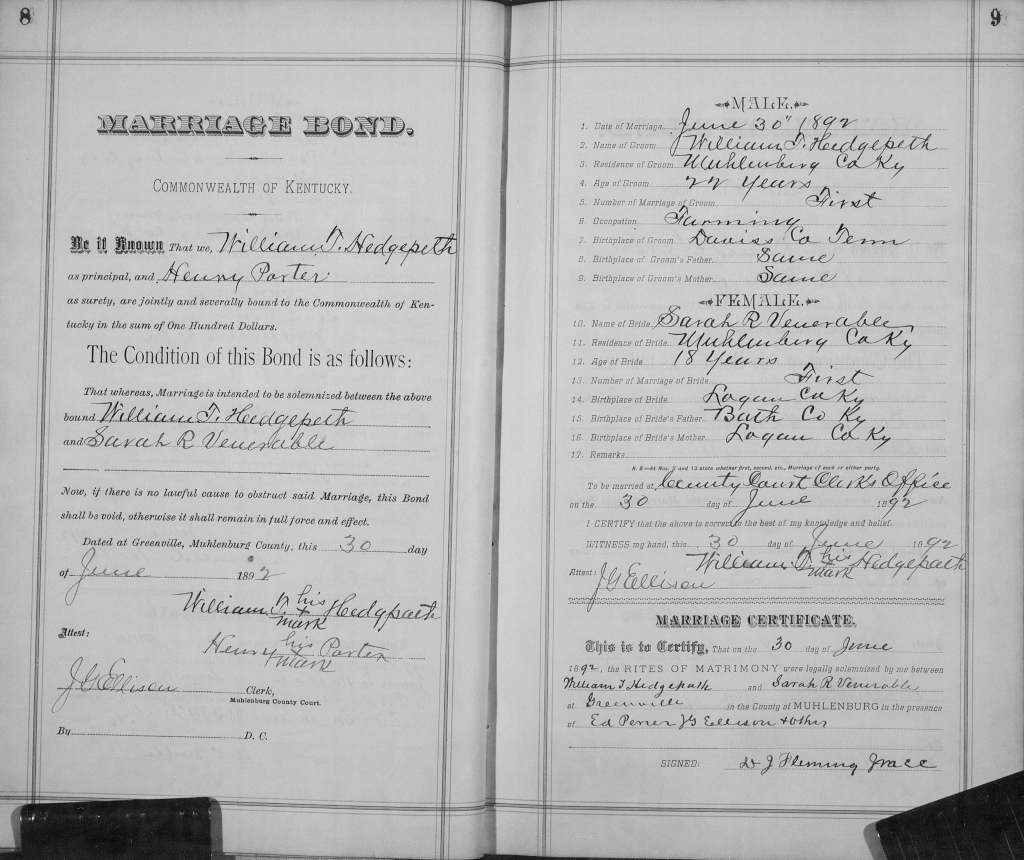 8
MARRIAGE BOND.
COMMONWEALTH OF KENTUCKY.
Be it Known That we, William T. Hedgepeth
as principal, and Henry Porter
as surety, are jointly and severally bound to the Commonwealth of Ken-
tucky in the sum of One Hundred Dollars.
The Condition of this Bond is as follows:
That whereas, Marriage is intended to be solemnized between the above
bound William T. Hedgepeth
and Sarah R Venerable
Now, if there is no lawful cause to obstruct said Marriage, this Bond
shall be void, otherwise it shall remain in full force and effect.
Dated at Greenville, Muhlenburg County, this 30 day
of June 1892
William T. his x mark Hedgpath
Attest:
Henry his x mark Porter
J G Ellison Clerk,
Muhlenburg County Court.
By D. C.
9
MALE.
1. Date of Marriage June 30" 1892
2. Name of Groom William T. Hedgepeth
3. Residence of Groom Muhlenberg Co Ky
4. Age of Groom 22 Years
5. Number of Marriage of Groom First
6. Occupation Farming
7. Birthplace of Groom Daviss Co Tenn
8. Birthplace of Groom's Father Same
9. Birthplace of Groom's Mother Same
FEMALE.
10. Name of Bride Sarah R Venerable
11. Residence of Bride Muhlenberg Co Ky
12. Age of Bride 18 Years
13. Number of Marriage of Bride First
14. Birthplace of Bride Logan Co Ky
15. Birthplace of Bride's Father Bath Co Ky
16. Birthplace of Bride's Mother Logan Co Ky
17. Remarks
N. B.—At Nos. 5 and 13 state whether first, second, etc., Marriage of each or either party.
To be married at County Court Clerks Office
on the 30 day of June 1892
I CERTIFY that the above is correct to the best of my knowledge and belief.
WITNESS my hand, this 30 day of June 1892
William T. his x mark Hedgepath
Attest: J G Ellison
MARRIAGE CERTIFICATE.
This is to Certify, That on the 30 day of June
1892, the RITES OF MATRIMONY were legally solemnized by me between
William T Hedgepath and Sarah R Venerable
at Greenville in the County of MUHLENBURG in the presence
of Ed J G Ellison & other
SIGNED: J Fleming